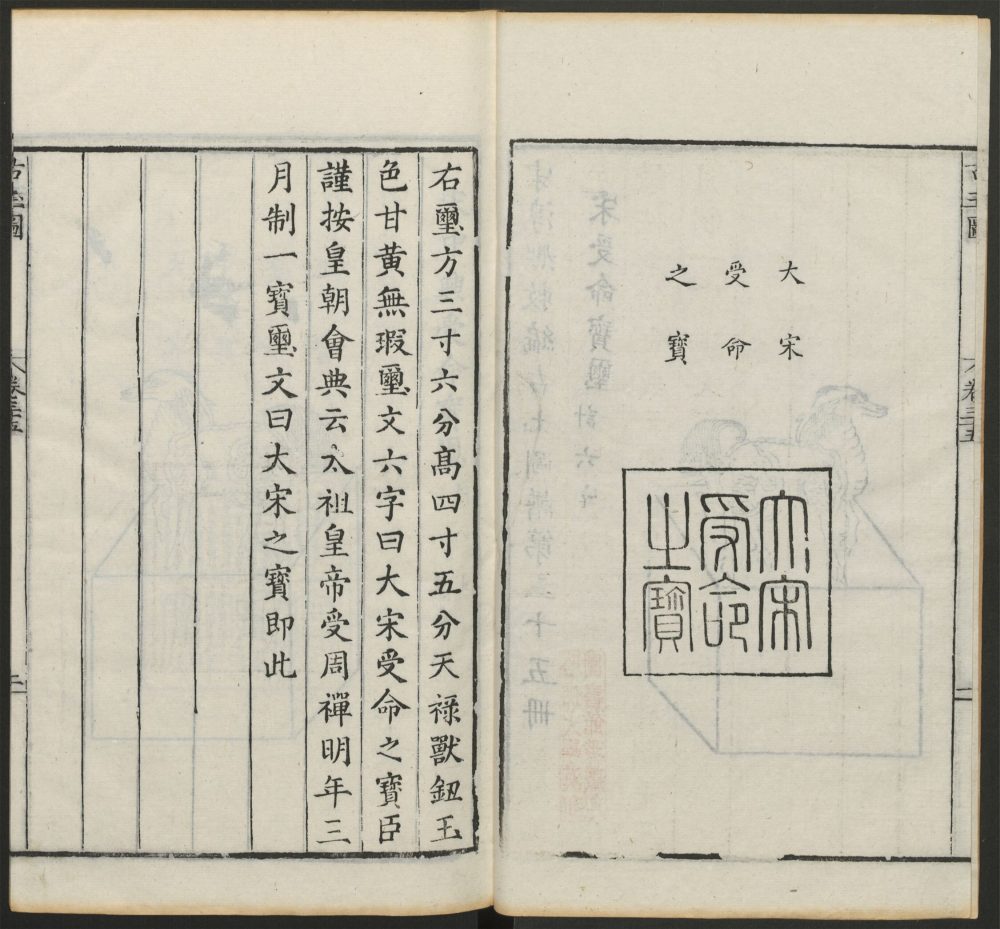 大宋
受命
之寶
大宋
受命
之寶
卷三十五
二
右璽方三寸六分高四寸五分天祿獸鈕玉
色甘黃無瑕璽文六字曰大宋受命之寶臣
謹按皇朝會典云太祖皇帝受周禪明年三
月制一寶璽文曰大宋之寶即此
古玉圖